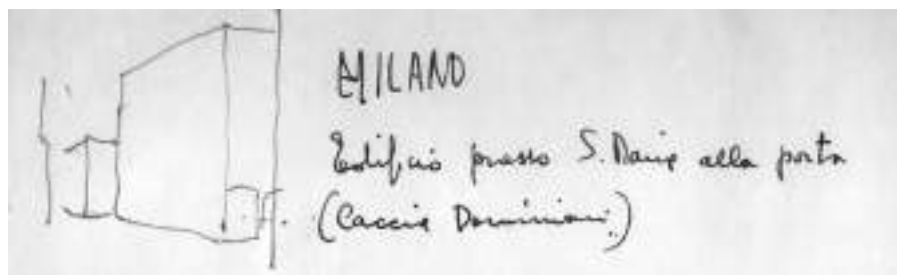 MILANO
Edificio presso S. Maria alla porta
(Caccia Dominioni)